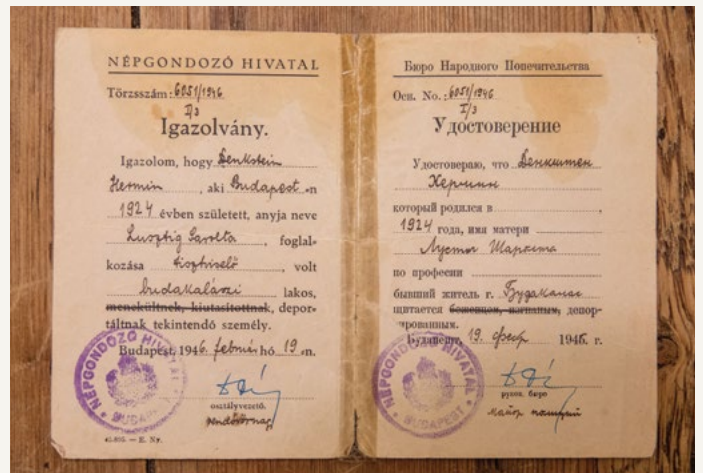 NÉPGONDOZÓ HIVATAL
Törzsszám: 6051/1946
I/3
Igazolvány.
Igazolom, hogy Denkstein
Hermin, aki Budapest-n
1924 évben született, anyja neve
Lusztig Sarolta, foglal-
kozása tisztviselő, volt
budakalászi lakos,
menekültnek, kiutasítottnak, depor-
táltnak tekintendő személy.
Budapest, 1946. február hó 19-n.
osztályvezető.
rendőrőrnagy
NÉPGONDOZÓ HIVATAL
BUDAPEST
41.805. — E. Ny.
Бюро Народного Попечительства
Осн. No.: 6051/1946
I/3
Удостоверение
Удостоверяю, что Денкштен
Хермин
который родился в
1924 года, имя матери
Лустиг Шарлота
по професии
бывший житель г. Будакалас
щитается беженцом, изгнаным, депор-
тированным.
Будапешт, 19. февр 1946. г.
руков. бюро
майор полиции
NÉPGONDOZÓ HIVATAL
BUDAPEST